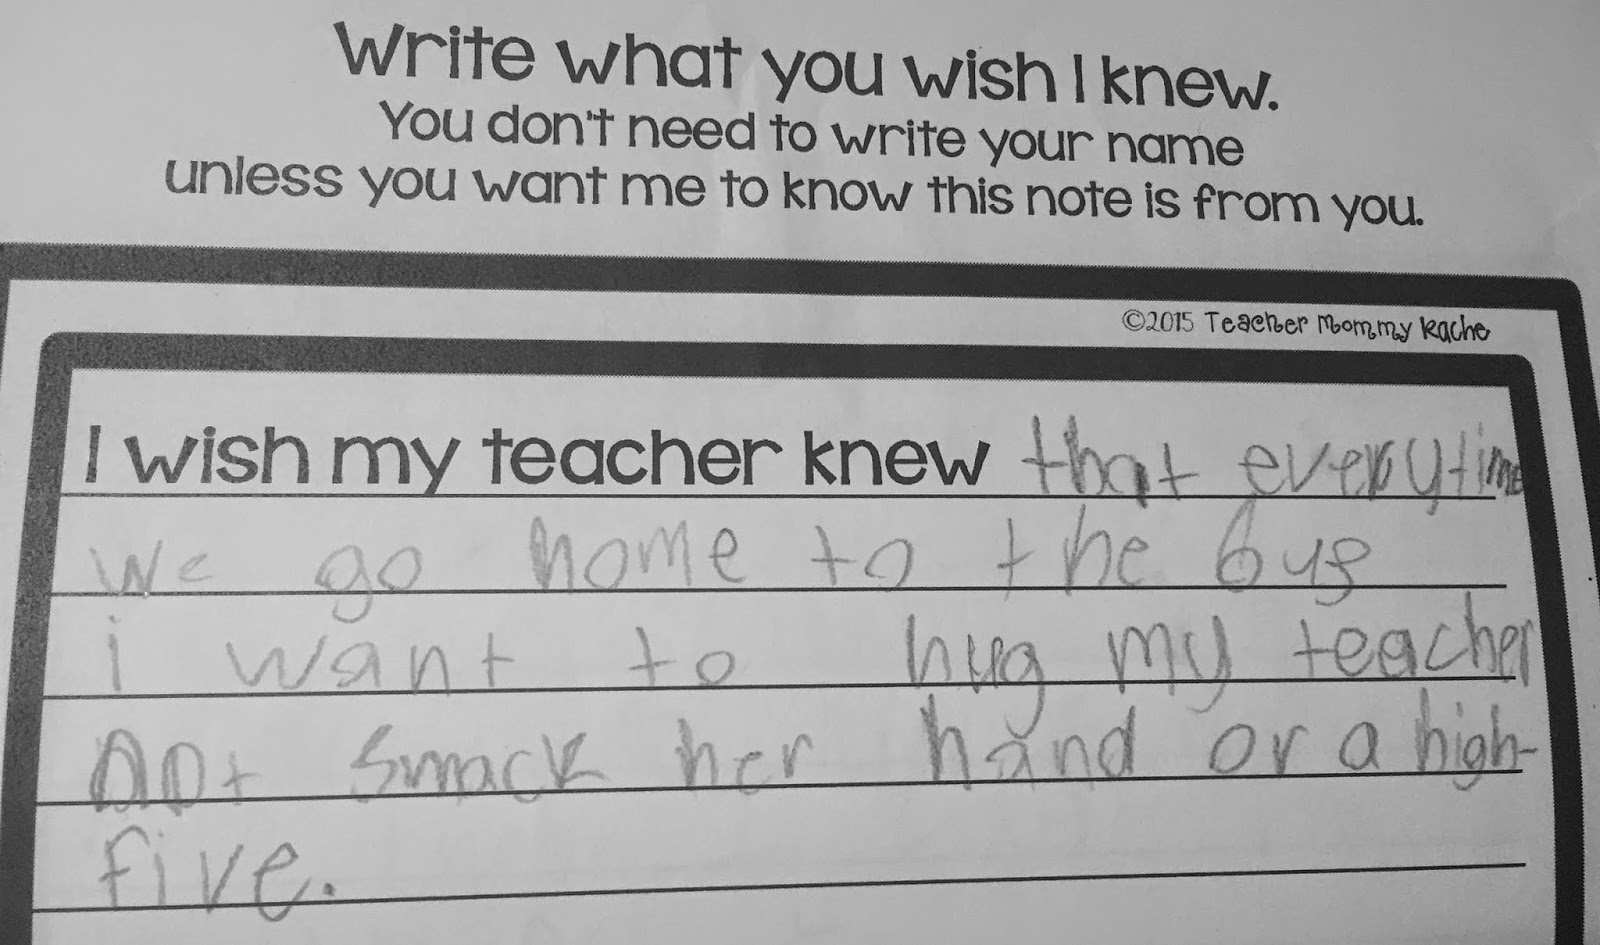 Write what you wish I knew.
You don't need to write your name
unless you want me to know this note is from you.
©2015 Teacher Mommy Rache
I wish my teacher knew that everytime
we go home to the bus
i want to hug my teacher
not smack her hand or a high-
five.